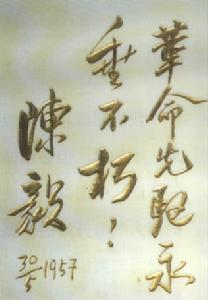 革命先驱永
垂不朽！
陳毅
30/5 1957